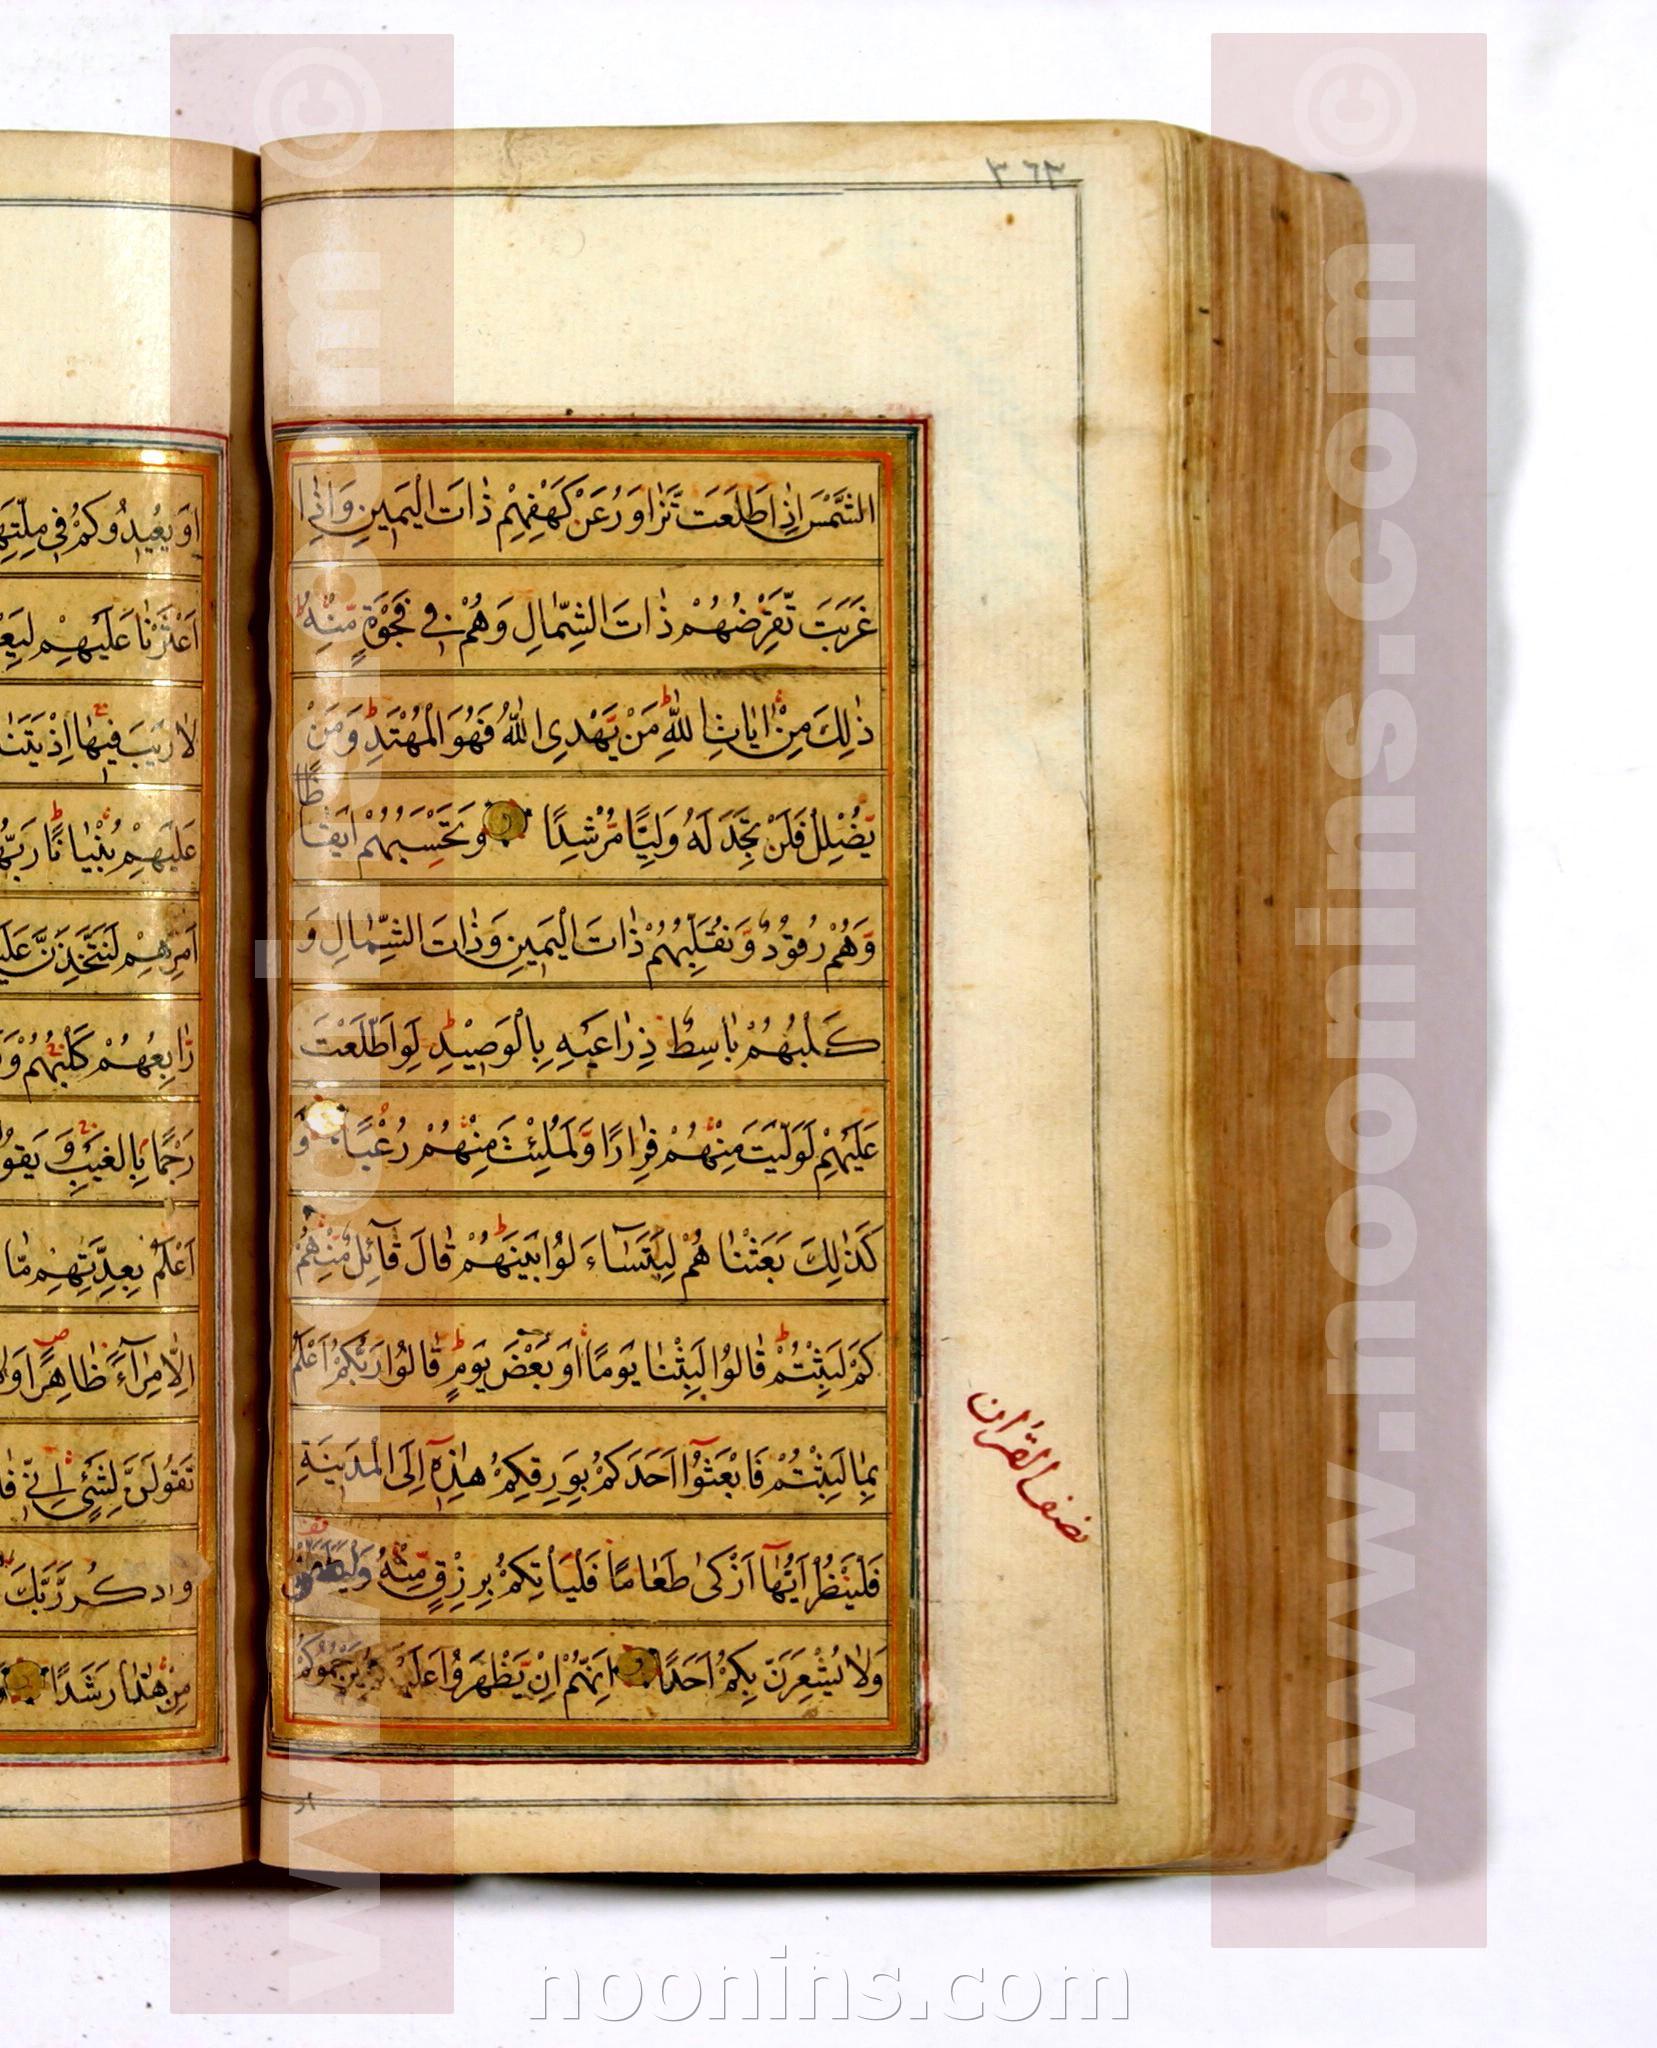 ٣٦٣
الشَّمْسَ اِذٰا طَلَعَتْ تَّزٰاوَرُ عَنْ كَهْفِهِمْ ذٰاتَ الْيَمٖينِ وَاِذٰا
غَرَبَتْ تَّقْرِضُهُمْ ذٰاتَ الشِّمٰالِ وَهُمْ فٖي فَجْوَةٍ مِّنْهُ ط
ذٰلِكَ مِنْ اٰيٰاتِ اللّٰهِ ط مَنْ يَّهْدِي اللّٰهُ فَهُوَ الْمُهْتَدِ ط وَمَنْ
يُّضْلِلْ فَلَنْ تَجِدَ لَهُ وَلِيًّا مُّرْشِدًا وَتَحْسَبُهُمْ اَيْقٰاظًا
وَّهُمْ رُقُودٌ وَّنُقَلِّبُهُمْ ذٰاتَ الْيَمٖينِ وَذٰاتَ الشِّمٰالِ وَ
كَلْبُهُمْ بٰاسِطٌ ذِرٰاعَيْهِ بِالْوَصٖيدِ ط لَوِ اطَّلَعْتَ
عَلَيْهِمْ لَوَلَّيْتَ مِنْهُمْ فِرٰارًا وَّلَمُلِئْتَ مِنْهُمْ رُعْبًا وَ
كَذٰلِكَ بَعَثْنٰاهُمْ لِيَتَسٰاۤءَلُوا بَيْنَهُمْ ط قٰالَ قٰاۤئِلٌ مِّنْهُمْ
كَمْ لَبِثْتُمْ ط قٰالُوا لَبِثْنٰا يَوْمًا اَوْ بَعْضَ يَوْمٍ ط قٰالُوا رَبُّكُمْ اَعْلَمُ
بِمٰا لَبِثْتُمْ فَابْعَثُوۤا اَحَدَكُمْ بِوَرِقِكُمْ هٰذِهٖۤ اِلَى الْمَدٖينَةِ
فَلْيَنْظُرْ اَيُّهٰاۤ اَزْكىٰ طَعٰامًا فَلْيَأْتِكُمْ بِرِزْقٍ مِّنْهُ
وَلٰا يُشْعِرَنَّ بِكُمْ اَحَدًا اِنَّهُمْ اِنْ يَّظْهَرُوا يَرْجُمُوكُمْ
نصف القرٰان
اَوْ يُعٖيدُوكُمْ فٖي مِلَّتِهِ
اَعْثَرْنٰا عَلَيْهِمْ لِيَعْ
لٰا رَيْبَ فٖيهٰا اِذْ يَتَنٰ
عَلَيْهِمْ بُنْيٰانًا ط رَبُّهُ
اَمْرِهِمْ لَنَتَّخِذَنَّ عَلَيْ
رٰابِعُهُمْ كَلْبُهُمْ وَ
رَجْمًا بِالْغَيْبِ وَيَقُو
اَعْلَمُ بِعِدَّتِهِمْ مٰا
اِلّٰا مِرٰاۤءً ظٰاهِرًا وَلٰا
تَقُولَنَّ لِشَيْءٍ اِنّٖي فٰا
وَاذْكُرْ رَّبَّكَ
مِنْ هٰذٰا رَشَدًا
www.noonins.com ©
www.noonins.com ©
noonins.com